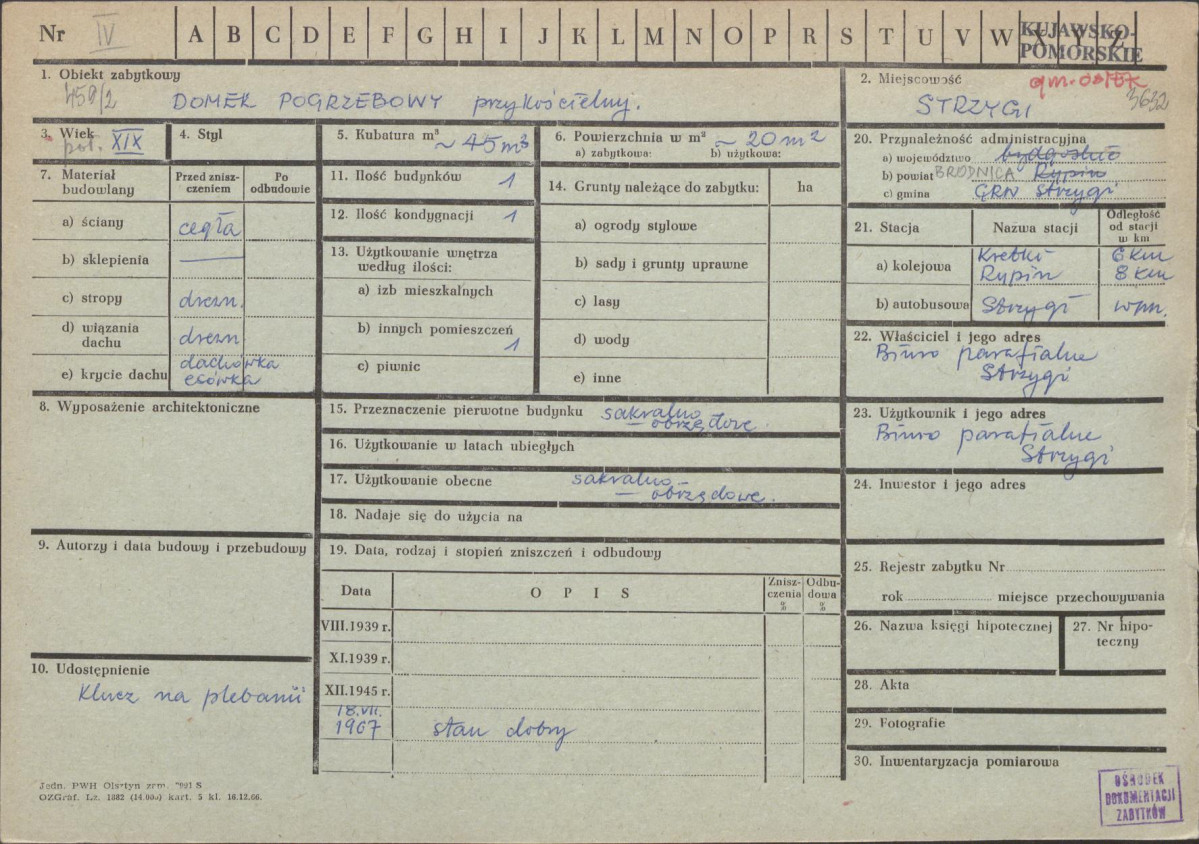 Nr IV A B C D E F G H I J K L M N O P R S T U V W
KUJAWSKO-
POMORSKIE
1. Obiekt zabytkowy
459/2 DOMEK POGRZEBOWY przykościelny.
2. Miejscowość gm. osiek
3632
STRZYGI
3. Wiek
poł. XIX
4. Styl
5. Kubatura m³
~ 45 m³
6. Powierzchnia w m² ~ 20 m²
a) zabytkowa: b) użytkowa:
7. Materiał
budowlany
Przed znisz-
czeniem
Po
odbudowie
a) ściany cegła
b) sklepienia —
c) stropy drewn.
d) wiązania
dachu drewn
e) krycie dachu dachówka
esówka
8. Wyposażenie architektoniczne
9. Autorzy i data budowy i przebudowy
10. Udostępnienie
Klucz na plebanii
11. Ilość budynków 1
12. Ilość kondygnacji 1
13. Użytkowanie wnętrza
według ilości:
a) izb mieszkalnych
b) innych pomieszczeń
1
c) piwnic
14. Grunty należące do zabytku: ha
a) ogrody stylowe
b) sady i grunty uprawne
c) lasy
d) wody
e) inne
15. Przeznaczenie pierwotne budynku sakralno
— obrzędowe.
16. Użytkowanie w latach ubiegłych
17. Użytkowanie obecne sakralno
— obrzędowe.
18. Nadaje się do użycia na
19. Data, rodzaj i stopień zniszczeń i odbudowy
Data O P I S Znisz-
czenia
% Odbu-
dowa
%
VIII.1939 r.
XI.1939 r.
XII.1945 r.
18.VII.
1967 stan dobry
20. Przynależność administracyjna
a) województwo bydgoskie
b) powiat BRODNICA Rypin
c) gmina GRN Strzygi
21. Stacja Nazwa stacji Odległość
od stacji
w km
a) kolejowa Kretki 6 km
Rypin 8 km
b) autobusowa Strzygi w m.
22. Właściciel i jego adres
Biuro parafialne
Strzygi
23. Użytkownik i jego adres
Biuro parafialne
Strzygi
24. Inwestor i jego adres
25. Rejestr zabytku Nr
rok miejsce przechowywania
26. Nazwa księgi hipotecznej
27. Nr hipo-
teczny
28. Akta
29. Fotografie
30. Inwentaryzacja pomiarowa
Jedn. PWH Olsztyn zam. S
OZGraf. Lz. 1882 (14.000) kart. 5 kl. 16.12.66.
OŚRODEK
DOKUMENTACJI
ZABYTKÓW